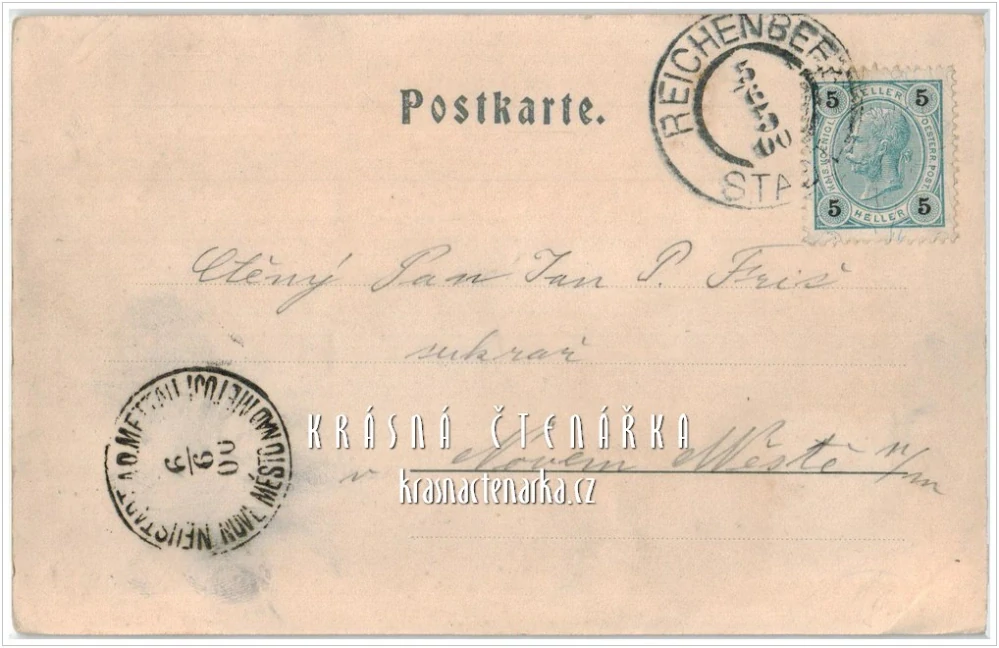 Postkarte.
REICHENBERG STADT
5 6 00
5 HELLER 5
KAIS. KÖNIGL. OESTERR. POST.
5 HELLER 5
Ctěný Pan Jan P. Friš
cukrař
v Novém Městě n/m
NEUSTADT A.D. METTAU NOVÉ MĚSTO NAD METUJÍ
6/6 00
KRÁSNÁ ČTENÁŘKA
krasnactenarka.cz